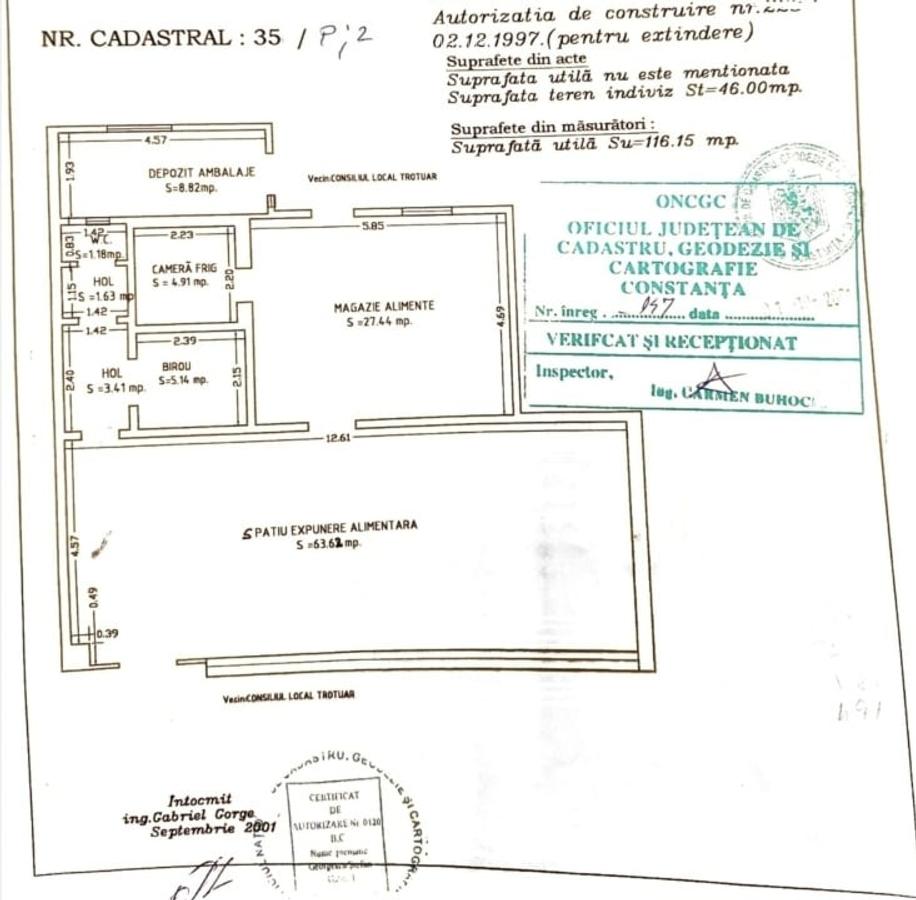 Autorizatia de construire nr.
NR. CADASTRAL : 35 / P;2
02.12.1997.(pentru extindere)
Suprafete din acte
Suprafata utilă nu este mentionata
Suprafata teren indiviz St=46.00mp.
Suprafete din măsurători :
Suprafată utilă Su=116.15 mp.
4.57
1.93
DEPOZIT AMBALAJE
S=8.82mp.
Vecin:CONSILIUL LOCAL TROTUAR
ONCGC
OFICIUL JUDEŢEAN DE
CADASTRU, GEODEZIE ŞI
CARTOGRAFIE
CONSTANŢA
Nr. înreg. data
VERIFCAT ŞI RECEPŢIONAT
Inspector,
Ing. CARMEN BUHOCI
1.42
0.83
W.C.
S=1.18mp.
2.23
5.85
HOL
S =1.63 mp
1.15
1.42
CAMERĂ FRIG
S = 4.91 mp.
2.20
MAGAZIE ALIMENTE
S =27.44 mp.
4.69
1.42
2.39
HOL
S =3.41 mp.
2.40
BIROU
S=5.14 mp.
2.15
12.61
SPATIU EXPUNERE ALIMENTARA
S =63.62 mp.
4.57
0.49
0.39
Vecin:CONSILIUL LOCAL TROTUAR
Intocmit
ing.Gabriel Gorge
Septembrie 2001
CERTIFICAT
DE
AUTORIZARE Nr 0120
Nume prenume